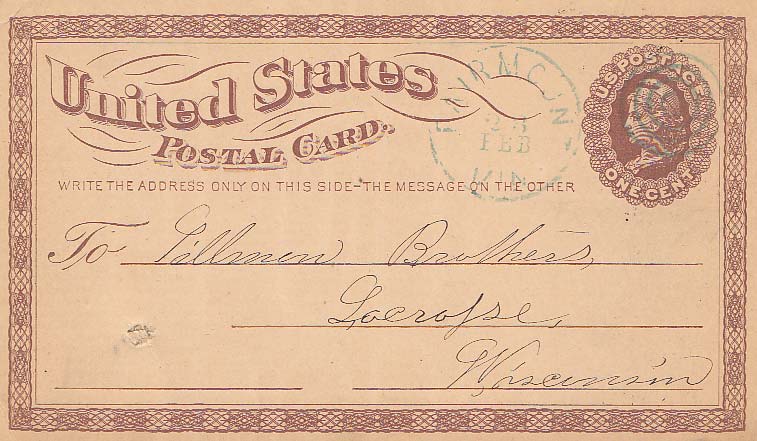 United States
POSTAL CARD.
U.S. POSTAGE
ONE CENT
FAIRMONT
FEB
MIN
WRITE THE ADDRESS ONLY ON THIS SIDE–THE MESSAGE ON THE OTHER
To Tillmen Brothers,
Lacrosse,
Wisconsin